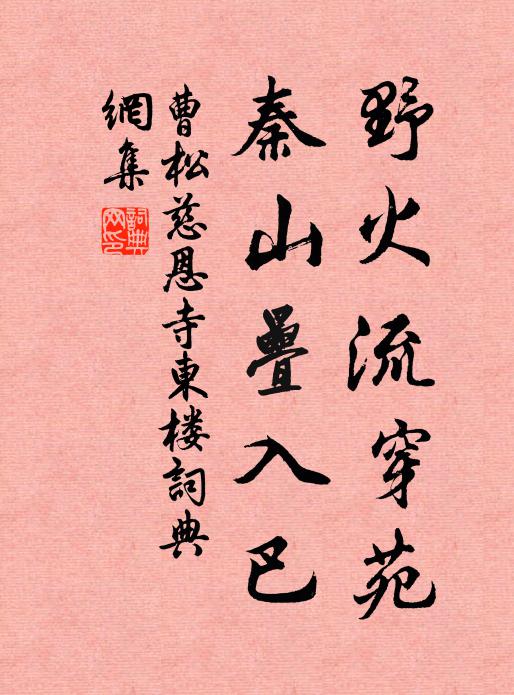 野火流穿苑
秦山疊入巴
曹松慈恩寺東楼詞典
網集
詞典
网印